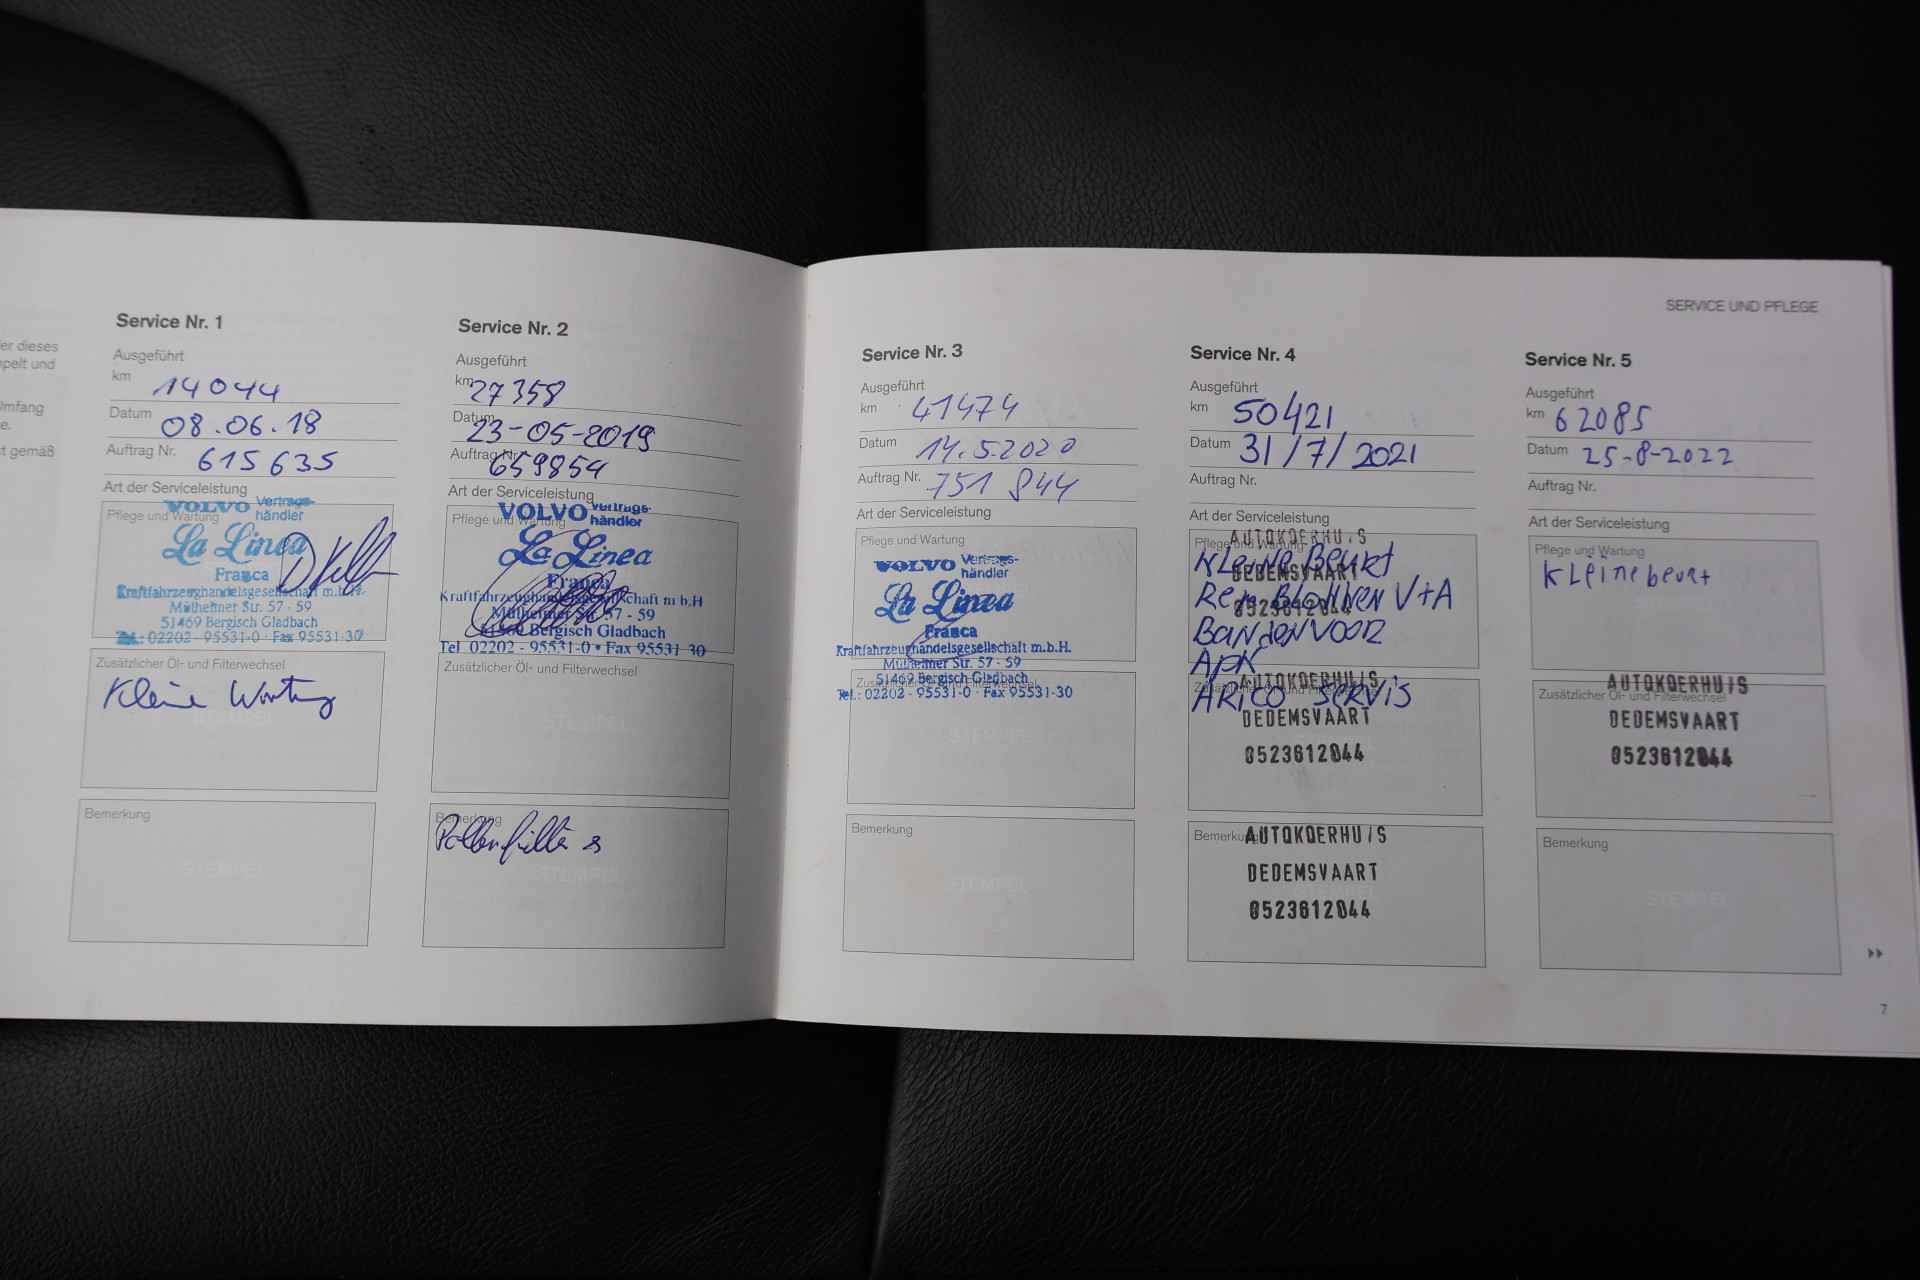 er dieses
pelt und
Umfang
e.
t gemäß
Service Nr. 1
Ausgeführt
km 14044
Datum 08.06.18
Auftrag Nr. 615635
Art der Serviceleistung
Pflege und Wartung
VOLVO Vertrags-
händler
La Linea
Franca
Kraftfahrzeughandelsgesellschaft m.b.H.
Mülheimer Str. 57 - 59
51469 Bergisch Gladbach
Tel.: 02202 - 95531-0 · Fax 95531-30
Zusätzlicher Öl- und Filterwechsel
Kleine Wartung
STEMPEL
Bemerkung
STEMPEL
Service Nr. 2
Ausgeführt
km 27358
Datum 23-05-2019
Auftrag Nr. 659854
Art der Serviceleistung
Pflege und Wartung
VOLVO Vertrags-
händler
La Linea
Franca
Kraftfahrzeughandelsgesellschaft m b.H
Mülheimer Str. 57 - 59
51469 Bergisch Gladbach
Tel 02202 - 95531-0 • Fax 95531 30
Zusätzlicher Öl- und Filterwechsel
STEMPEL
Bemerkung
Pollenfilter
STEMPEL
SERVICE UND PFLEGE
Service Nr. 3
Ausgeführt
km 41474
Datum 14.5.2020
Auftrag Nr. 751 844
Art der Serviceleistung
Pflege und Wartung
VOLVO Vertrags-
händler
La Linea
Franca
Kraftfahrzeughandelsgesellschaft m.b.H.
Mülheimer Str. 57 - 59
51469 Bergisch Gladbach
Tel.: 02202 - 95531-0 · Fax 95531-30
Zusätzlicher Öl- und Filterwechsel
STEMPEL
Bemerkung
STEMPEL
Service Nr. 4
Ausgeführt
km 50421
Datum 31/7/2021
Auftrag Nr.
Art der Serviceleistung
Pflege und Wartung
AUTOKOERHUIS
Kleine Beurt
DEDEMSVAART
Rem Blokken V+A
0523612044
Banden voor
APK
AUTOKOERHUIS
Zusätzlicher Öl- und Filterwechsel
AIRCO SERVIS
DEDEMSVAART
0523612044
Bemerkung
AUTOKOERHUIS
DEDEMSVAART
0523612044
Service Nr. 5
Ausgeführt
km 62085
Datum 25-8-2022
Auftrag Nr.
Art der Serviceleistung
Pflege und Wartung
Kleine beurt
AUTOKOERHUIS
Zusätzlicher Öl- und Filterwechsel
DEDEMSVAART
0523612044
Bemerkung
STEMPEL
7